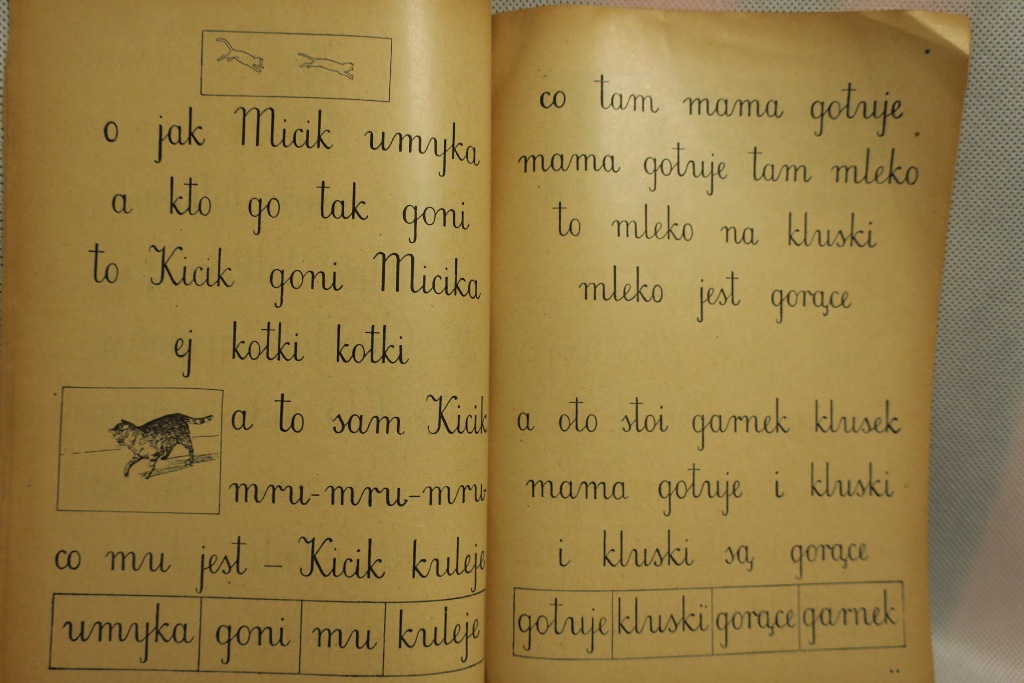 o jak Micik umyka
a kto go tak goni
to Kicik goni Micika
ej kotki kotki
a to sam Kicik
mru-mru-mru-
co mu jest – Kicik kuleje
umyka goni mu kuleje
co tam mama gotuje
mama gotuje tam mleko
to mleko na kluski
mleko jest gorące
a oto stoi garnek klusek
mama gotuje i kluski
i kluski są gorące
gotuje kluski gorące garnek